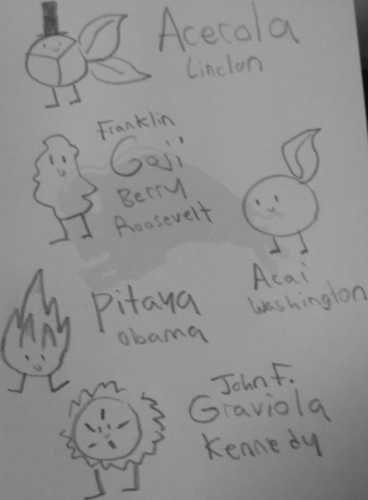 Acerola
Linclon
Franklin
Goji
Berry
Roosevelt
Acai
Washington
Pitaya
Obama
John F.
Graviola
Kennedy